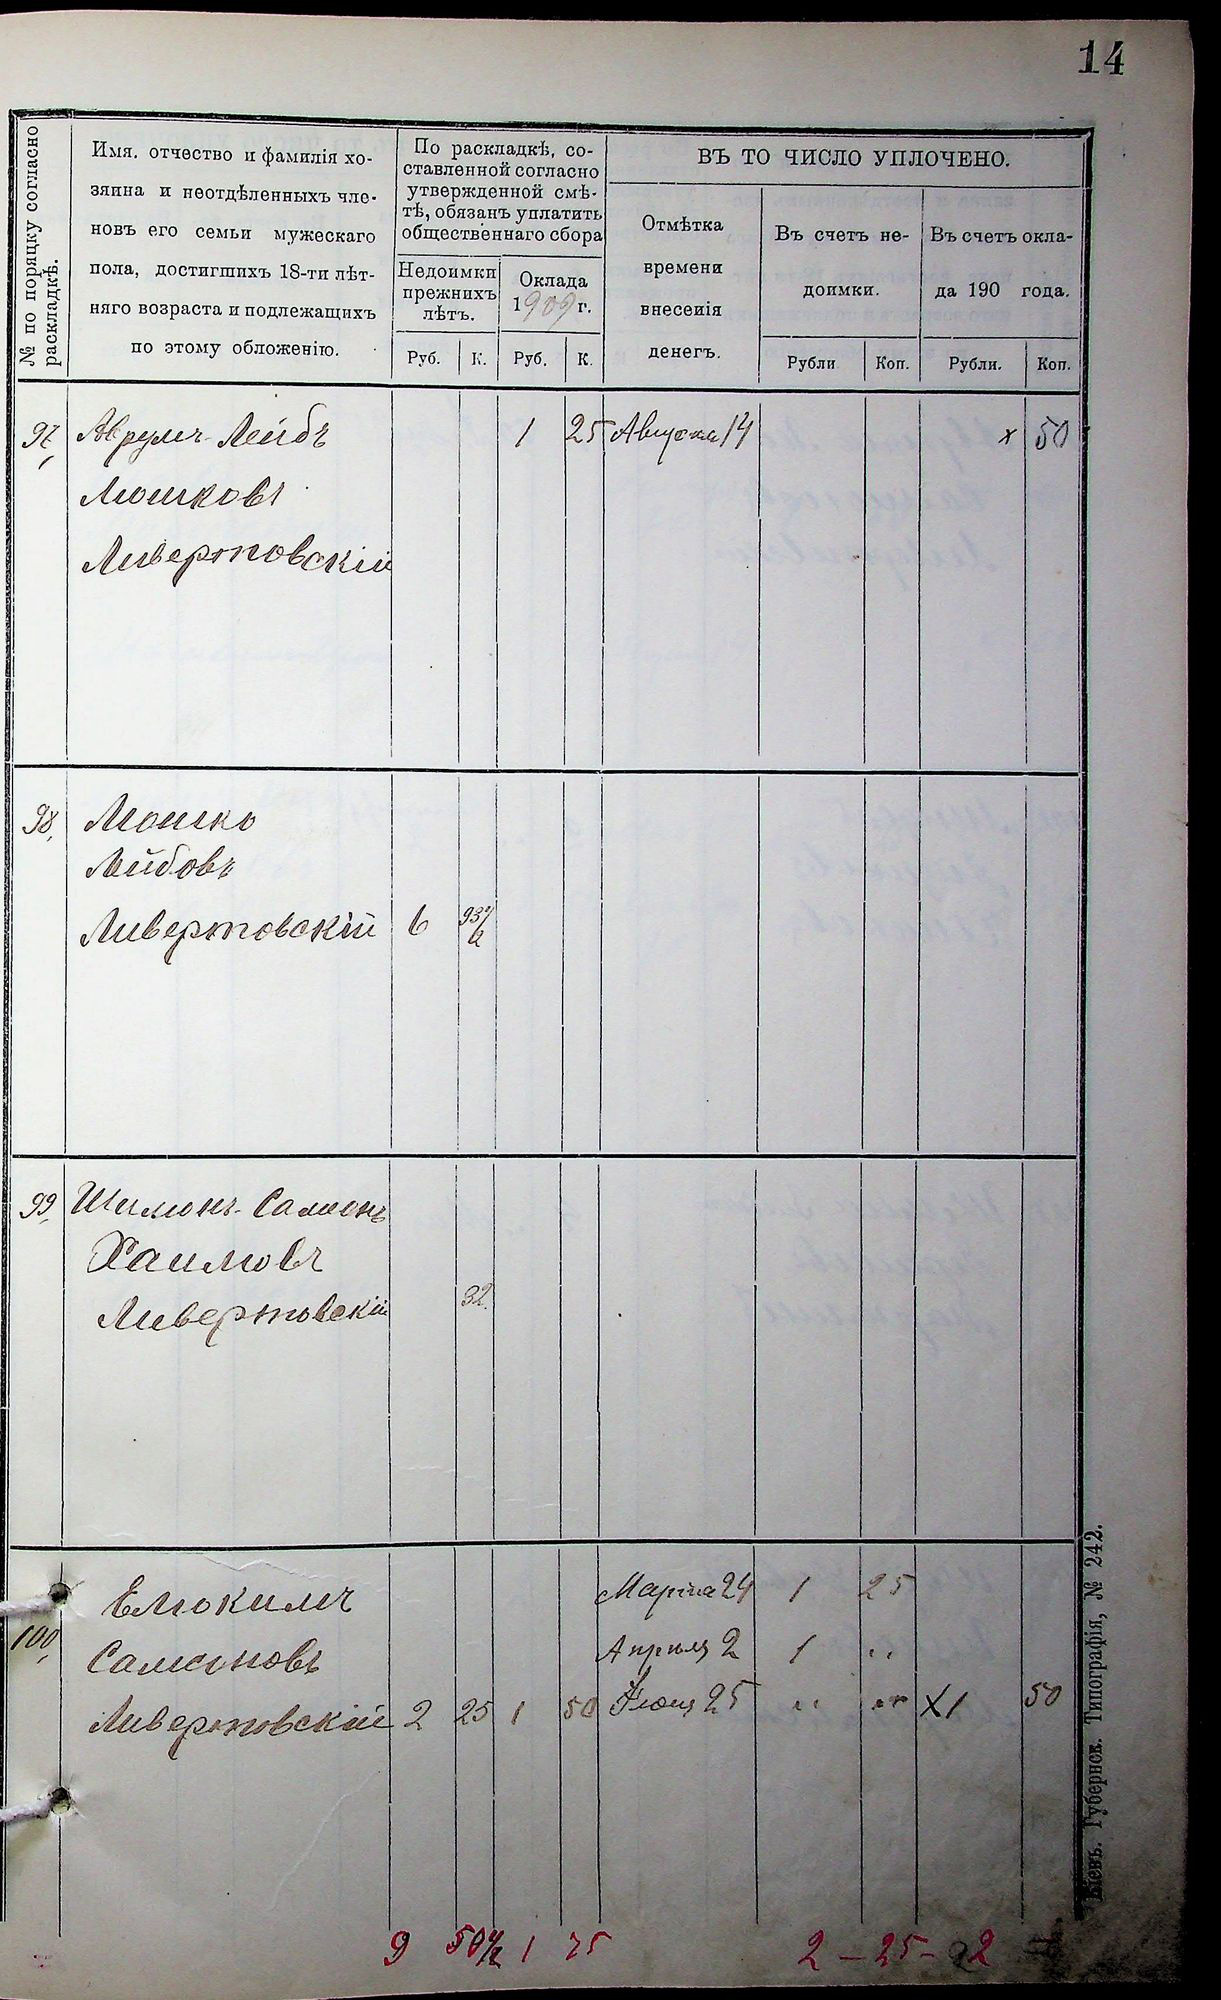 14
№ по порядку согласно
раскладкѣ.
Имя, отчество и фамилія хо-
зяина и неотдѣленныхъ чле-
новъ его семьи мужескаго
пола, достигшихъ 18-ти лѣт-
няго возраста и подлежащихъ
по этому обложенію.
По раскладкѣ, со-
ставленной согласно
утвержденной смѣ-
тѣ, обязанъ уплатить
общественнаго сбора
Недоимки
прежнихъ
лѣтъ.
Оклада
1909 г.
Руб. К. Руб. К.
ВЪ ТО ЧИСЛО УПЛОЧЕНО.
Отмѣтка
времени
внесенія
денегъ.
Въ счетъ не-
доимки.
Въ счетъ окла-
да 190 года.
Рубли Коп. Рубли. Коп.
97, Аврумъ-Лейбъ 1 25 Августа 14 х 50
Мошковъ
Ливертовскій
98, Мошко
Лейбовъ
Ливертовскій 6 93 1/2
99, Шимонъ-Самсонъ
Хаимовъ
Ливертовскій 32
Елюкимъ Марта 24 1 25
100, Самсоновъ Апрѣля 2 1 "
Ливертовскій 2 25 1 50 Іюня 25 " " Х1 50
9 50 1/2 1 75 2 - 25 - 2
Кіевъ. Губернск. Типографія, № 242.